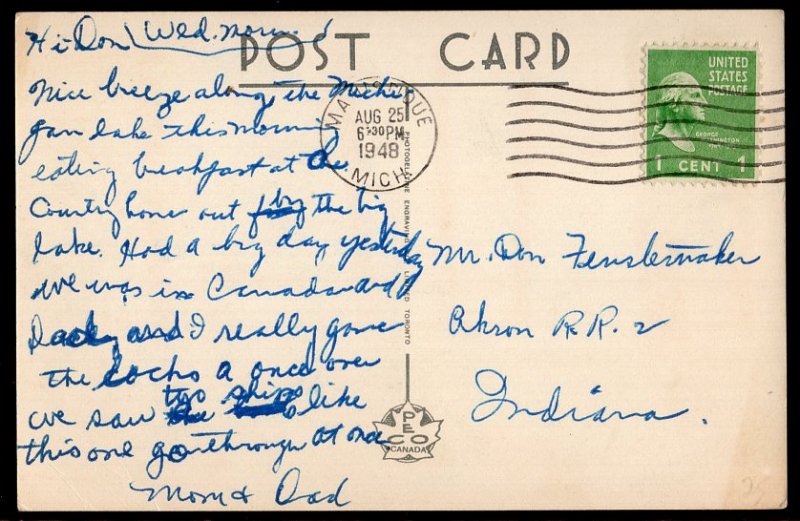 POST CARD
Hi Don Wed. morn.
Nice breeze along the Michi
gan lake this morning
eating breakfast at the
Country home out by the big
lake. Had a big day yesterday
we was in Canada and
Dady and I really gave
the locks a once over
we saw two ships like
this one go through at once
Mom & Dad
MANISTIQUE
AUG 25
6 30 PM
1948
MICH.
UNITED
STATES
POSTAGE
GEORGE
WASHINGTON
1 CENT 1
Mr. Don Fenstemaker
Akron R.R. 2
Indiana.
PECO
CANADA